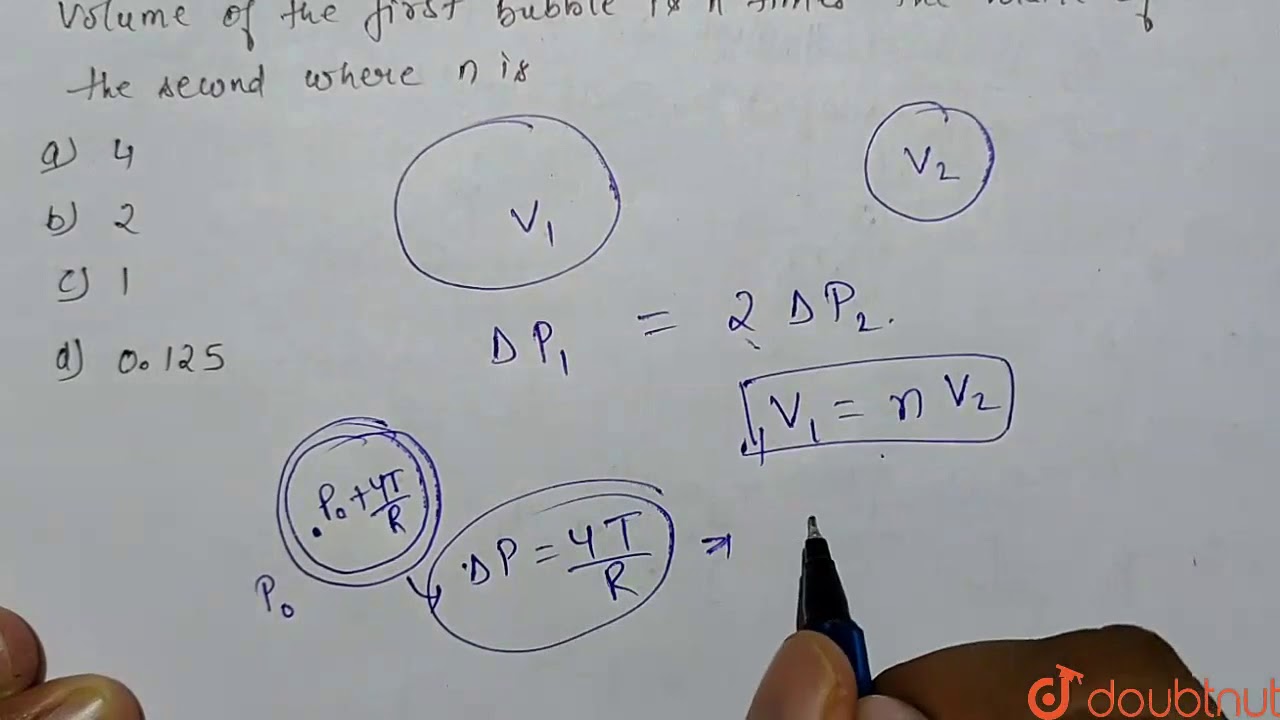 volume of the first bubble is n times the volume of
the second where n is
a) 4
b) 2
c) 1
d) 0.125
V1
V2
ΔP1 = 2 ΔP2.
V1 = n V2
P0 + 4T/R
P0
ΔP = 4T/R ⇒
doubtnut